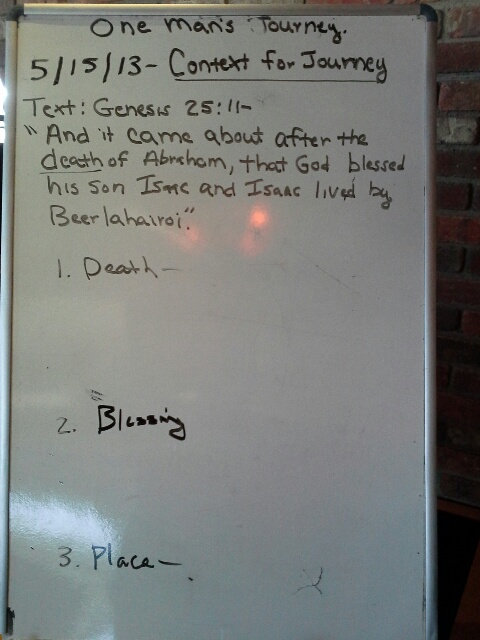 One Man's Journey.
5/15/13- Context for Journey
Text: Genesis 25:11-
"And it came about after the
death of Abraham, that God blessed
his son Isaac and Isaac lived by
Beerlahairoi."
1. Death-
2. Blessing
3. Place-.